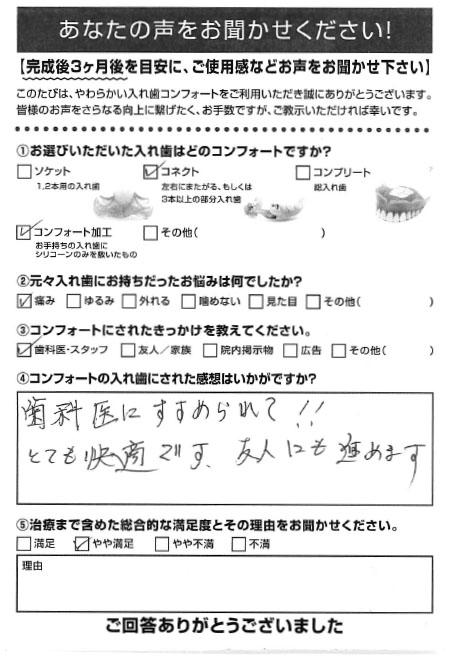 あなたの声をお聞かせください!
【完成後3ヶ月後を目安に、ご使用感などお声をお聞かせ下さい】
このたびは、やわらかい入れ歯コンフォートをご利用いただき誠にありがとうございます。
皆様のお声をさらなる向上に繋げたく、お手数ですが、ご教示いただければ幸いです。
①お選びいただいた入れ歯はどのコンフォートですか?
□ソケット ☑コネクト □コンプリート
1,2本用の入れ歯 左右にまたがる、もしくは 総入れ歯
3本以上の部分入れ歯
☑コンフォート加工 □その他( )
お手持ちの入れ歯に
シリコーンのみを敷いたもの
②元々入れ歯にお持ちだったお悩みは何でしたか?
☑痛み □ゆるみ □外れる □噛めない □見た目 □その他( )
③コンフォートにされたきっかけを教えてください。
☑歯科医・スタッフ □友人/家族 □院内掲示物 □広告 □その他( )
④コンフォートの入れ歯にされた感想はいかがですか?
歯科医にすすめられて!!
とても快適です、友人にも進めます
⑤治療まで含めた総合的な満足度とその理由をお聞かせください。
□満足 ☑やや満足 □やや不満 □不満
理由
ご回答ありがとうございました